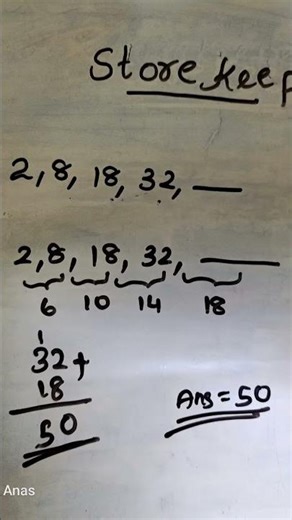 Store keep
2, 8, 18, 32, __
2, 8, 18, 32, __
6 10 14 18
1
32 +
18
50
Ans = 50
Anas